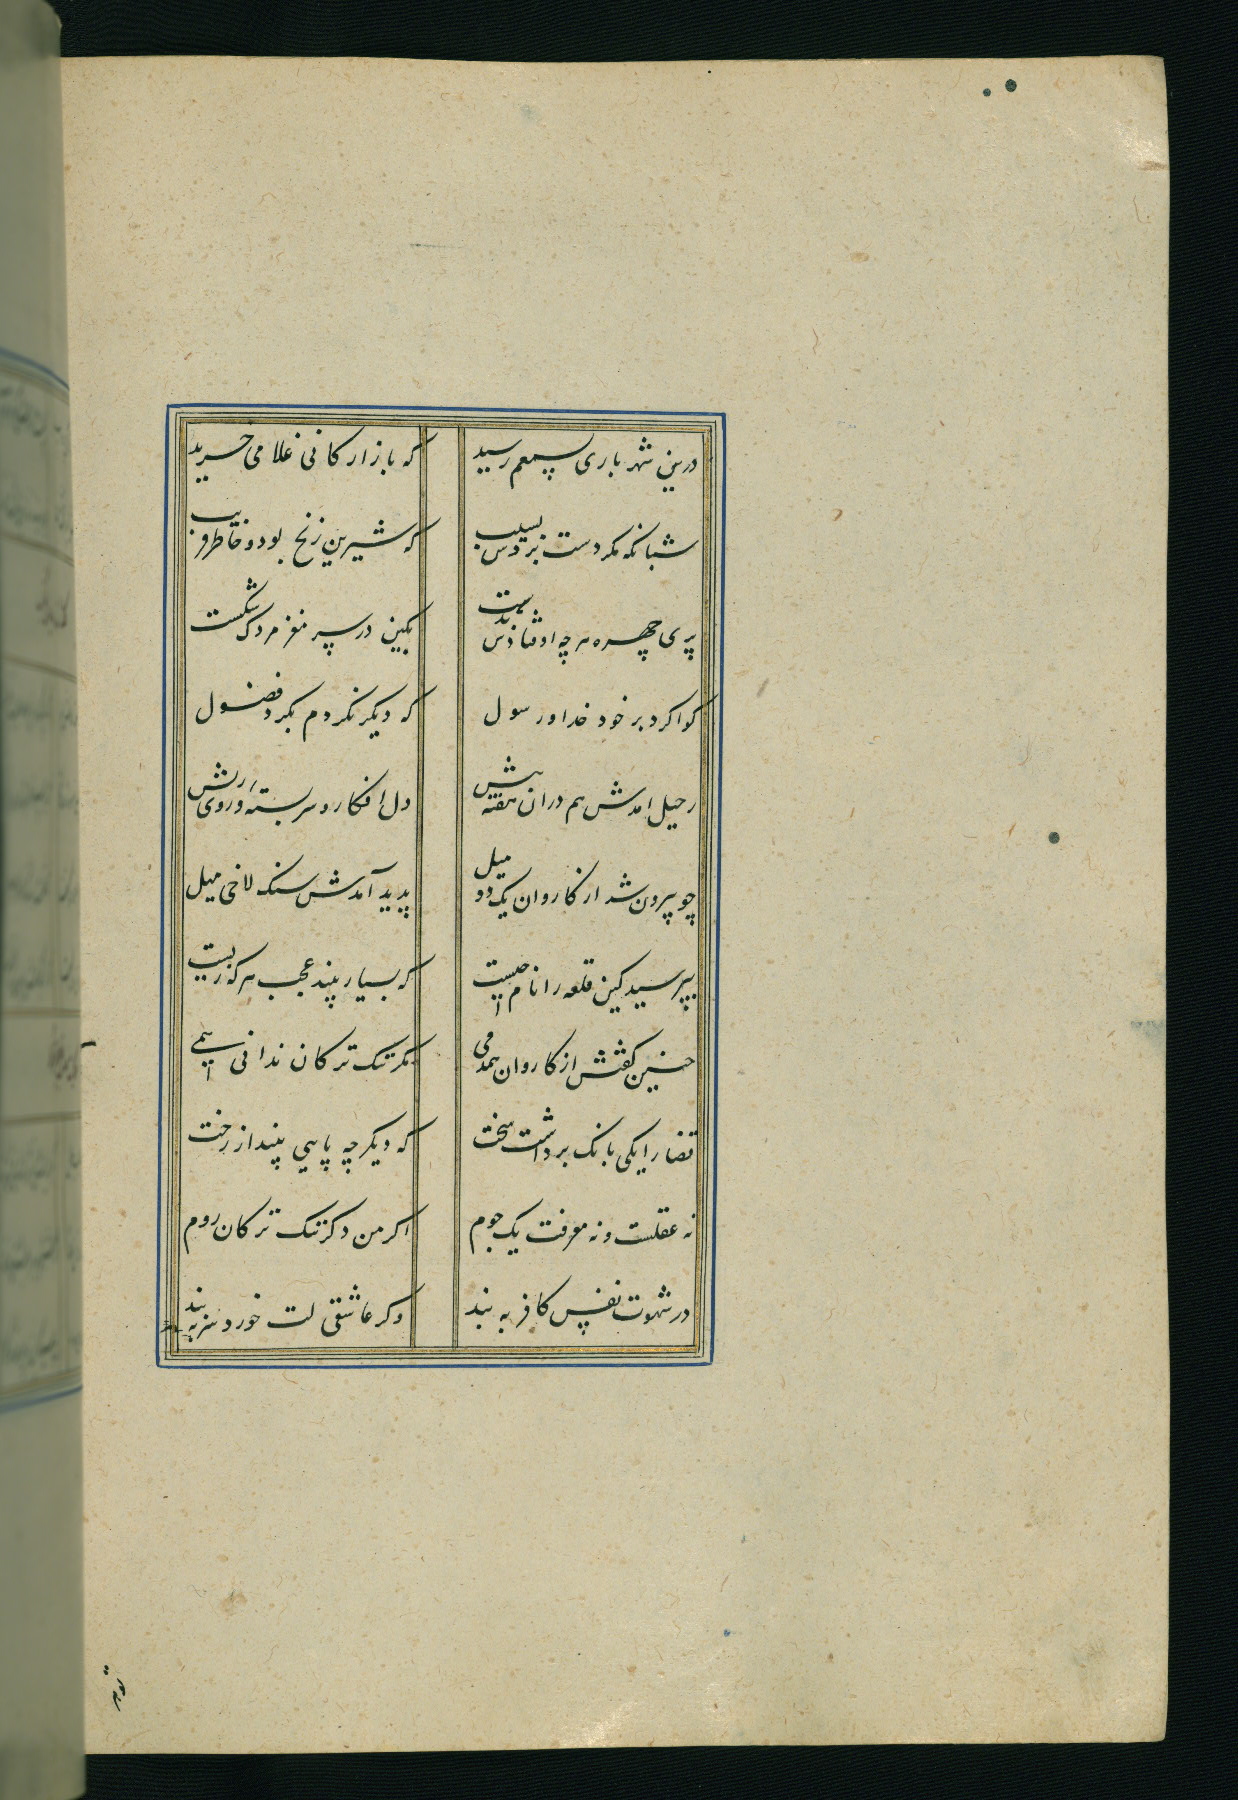 درین شهر باری بسمعم رسید که بازارکانی غلامی خرید
شبانکه مکر دست بردش بسیب که شیرین زنخ بود و خاطر فریب
پری چهره هرچه اوفتادش بدست بکین در سر مغز مردک شکست
کوا کرد بر خود خدا و رسول که دیکر نکردم بکرد فضول
رحیل امدش هم دران هفته پیش دل افکار و سربسته و روی ریش
چو بیرون شد از کاروان یک دو میل پدید آمدش سنک لاخی مهیل
بپرسید کین قلعه را نام چیست که بسیار بیند عجب هرکه زیست
چنین کفتش از کاروان همدمی مکر تنک ترکان ندانی همی
قضا را یکی بانک برداشت سخت که دیکر چه پایی بینداز رخت
نه عقلست و نه معرفت یک جوم اکر من دکر تنک ترکان روم
در شهوت نفس کافر ببند وکر عاشقی لت خور و سر ببند